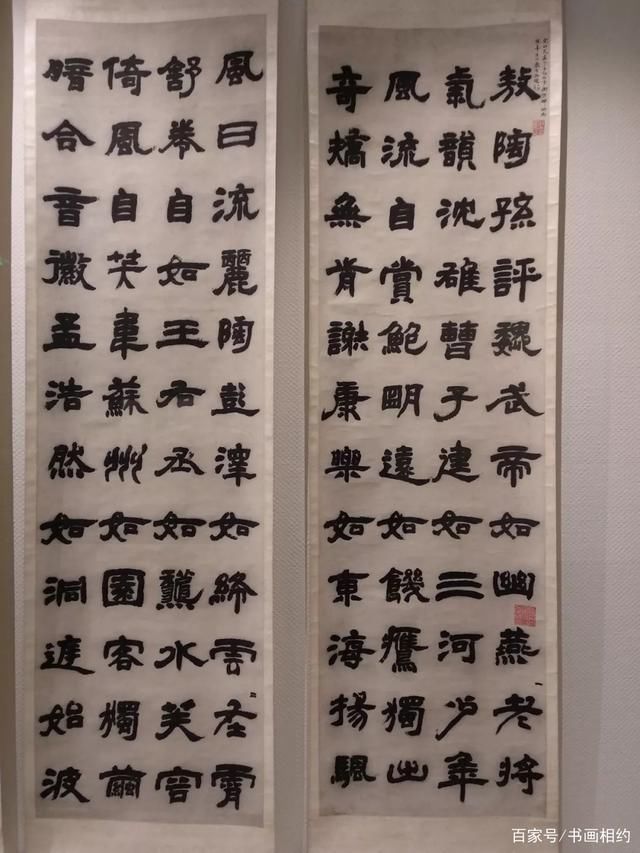 敖陶孫評魏武帝如幽燕老將
氣韻沈雄曹子建如三河少年
風流自賞鮑明遠如饑鷹獨出
奇矯無前謝康樂如東海揚颿
一
風日流麗陶彭澤如絳雲在霄
舒卷自如王右丞如龝水芙容
倚風自笑韋蘇州如園客獨繭
暗合音徽孟浩然如洞庭始波
二
百家号/书画相约